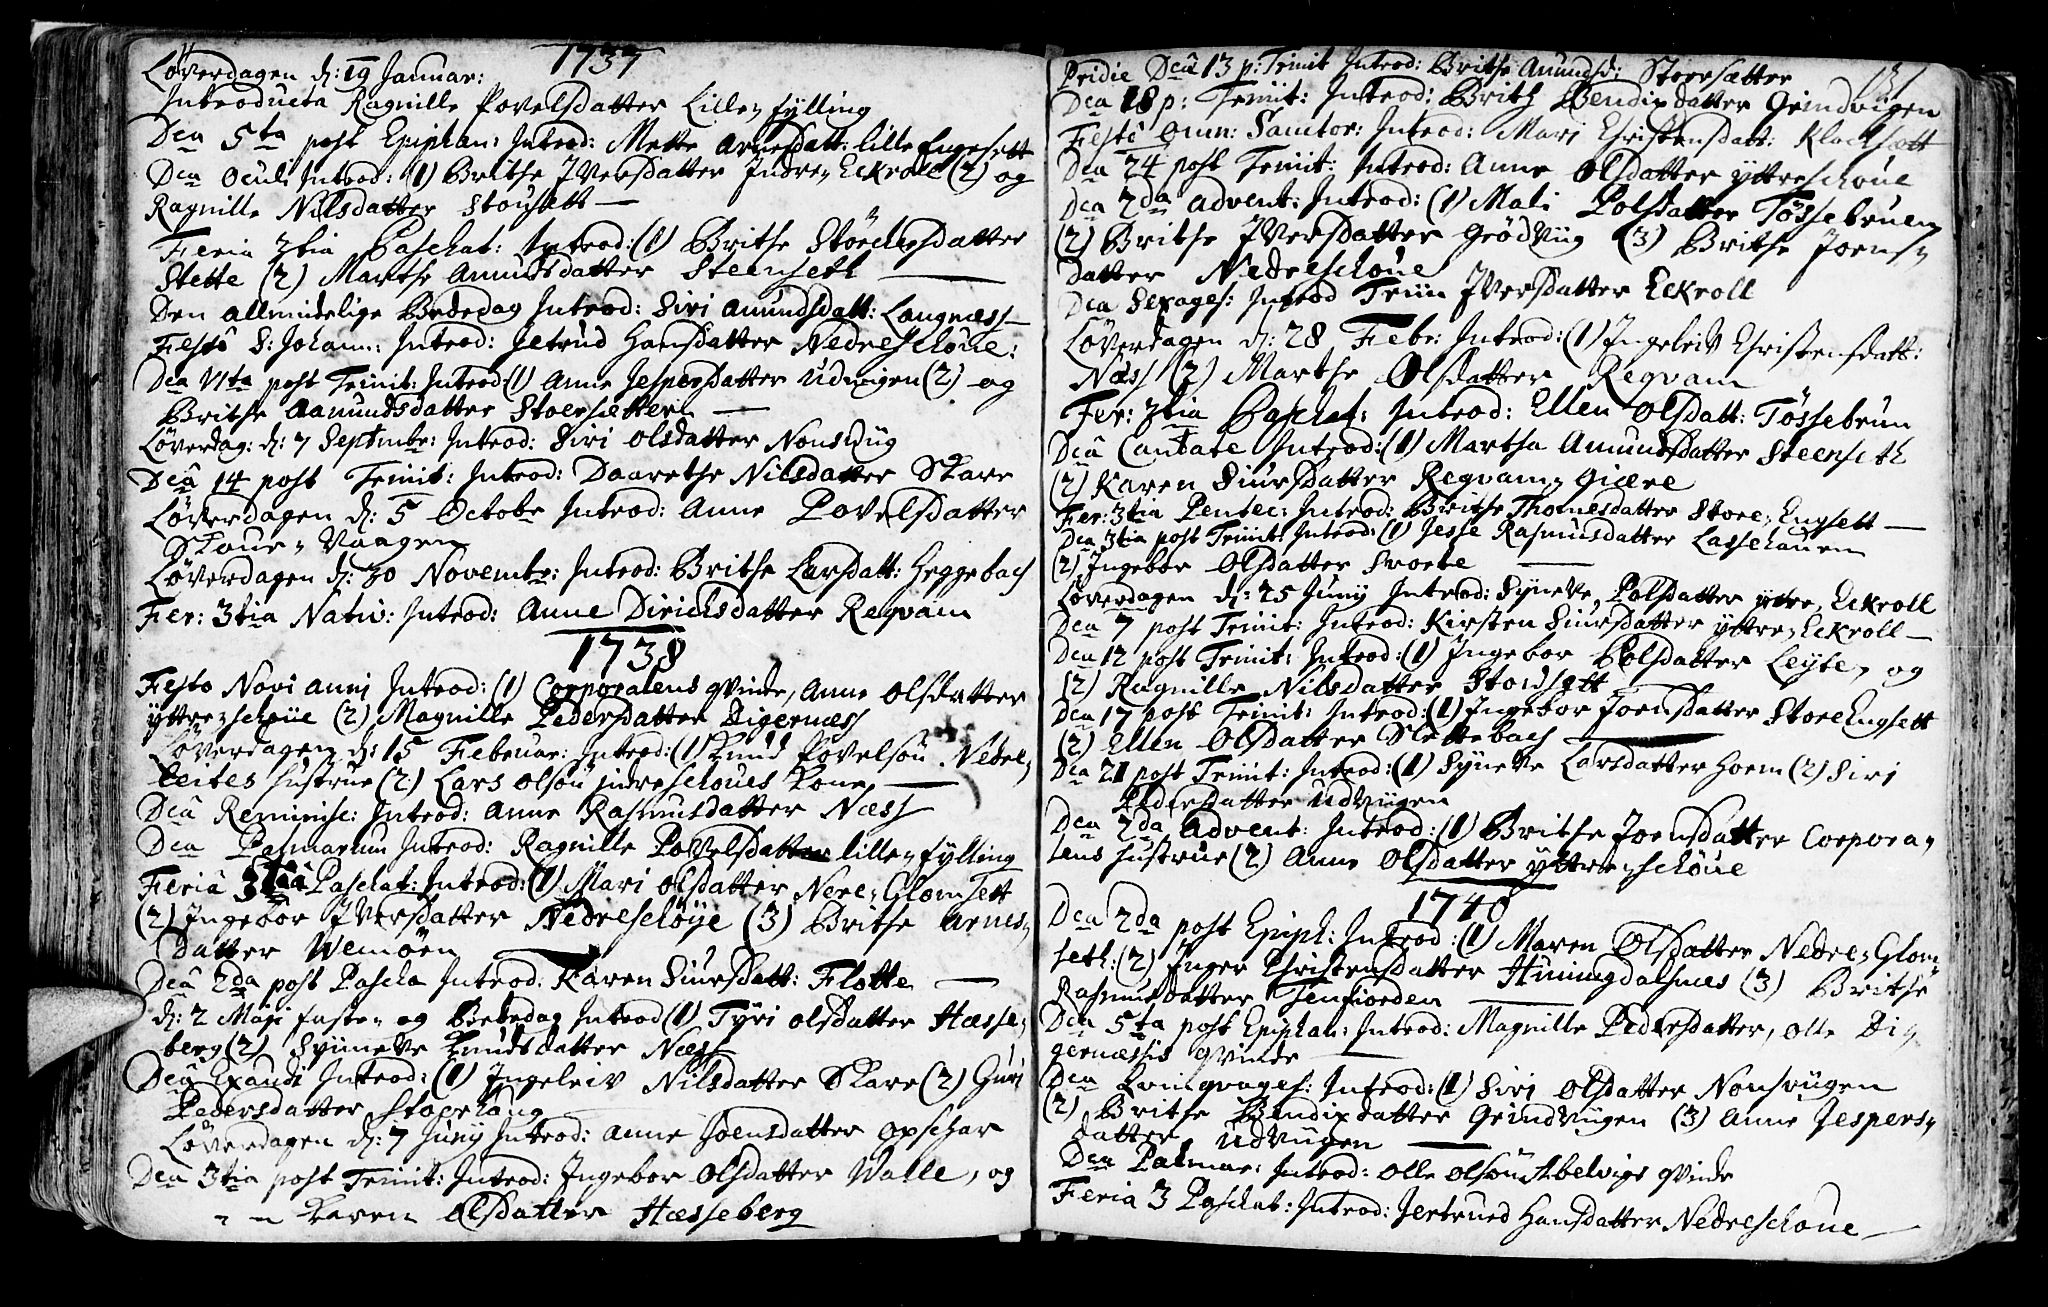 1737
Løverdagen d: 19 Januar:
Introducta Ragnille Povelsdatter Lille fylling
Dca 5ta post Epiphan: Introd: Mette Arnesdatt: lille Engesett
Dca Oculi Introd: (1) Brithe Iversdatter Indre Eckroll (2) og
Ragnille Nilsdatter Stousett —
Feria 3tia Paschat: Introd: (1) Brithe Störchersdatter
Stette (2) Marthe Amundsdatter Steenseth —
Den allmindelige Bededag Introd: Siri Amundsdatt: Langnæss —
Festô S: Johann: Introd: Jetrud Hansdatter Nedreschoue:
Dca VIta post Trinit: Introd (1) Anne Jespersdatter Udvigen (2) og
Brithe Aamundsdatter Stoersætter —
Löverdag: d: 7 Septembr: Introd: Siri Olsdatter Nonsvüg
Dcâ 14 post Trinit: Introd: Daarethe Nilsdatter Skare
Løverdagen d: 5 Octobr Introd: Anne Povelsdatter
Skour Vaagen
Løverdagen d: 30 Novembr: Introd: Brithe Larsdatt: Heggebach
Fer: 3tia Nativ: Introd: Anne Dirichsdatter Reqvam
1738
Festo Novi anni Introd: (1) Corporalens qvinde, Anne Olsdatter
yttreschoüe (2) Magnille Pedersdatter Digernæss
Løverdagen d: 15 Februar: Introd: (1) Knud Povelsøn Nedre
Leites hustrue (2) Lars Olsøn indreschoues Kone —
Dcâ Reminisc: Introd: Anne Rasmusdatter Næss
Dca Palmarum Introd: Ragnille Povelsdatter lille fylling
Feriâ 3tiâ Paschat: Introd: (1) Mari Olsdatter Nere Glomsett
(2) Ingebor Iversdatter Nedreschöye (3) Brithe Arnes
datter Wemöen —
Dcâ 2da post Pascha Introd: Karen Siursdatt: Flotte —
d: 2 Maji faste og Bededag Introd (1) Tyri Olsdatter Hæsse
berg (2) Synneve Knudsdatter Næss
Dcâ Exaudi Introd: (1) Ingeleiv Nilsdatter Skare (2) Guri
Pedersdatter Stoerhaug
Løverdagen d: 7 Juny Introd: Anne Joensdatter Opschar
Dca 3tia post Trinit: Introd: Ingebor Olsdatter Walle, og
Karen Olsdatter Hæsseberg
181
Pridie Dcâ 13 p: Trinit Introd: Brithe Amundsd: Stoersætter
Dca 18 p: Trinit: Introd: Brith Bendixdatter Grindvigen
Festô Omn: Sanctor: Introd: Mari Christensdatt: Klocksett
Dca 24 post Trinit: Introd: Anne Olsdatter yttreschoue
Dca 2da Advent: Introd: (1) Mali Polsdatter Tössebruen
(2) Brithe Iversdatter Grödviig (3) Brithe Joens
datter Nedreschöue
Dca Sexages: Introd Triin Iversdatter Eckroll
Løverdagen d: 28 Febr: Introd: (1) Ingeleiv Christensdatt:
Næss (2) Marthe Olsdatter Reqvam
Fer: 3tia Paschat: Introd: Ellen Olsdatt: Tössebrun
Dcâ Cantate Introd: (1) Martha Amundsdatter Steenseth
(2) Karen Siursdatter Reqvams Giære
Fer: 3tia Pentec: Introd: Brithe Thomesdatter Store Engsett —
Dca 3tia post Trinit: Introd: (1) Jesse Rasmusdatter Lassehauen
(2) Ingebor Olsdatter Svorte —
Løverdagen d: 25 Juny Introd: Syneve Polsdatter yttre Eckroll
Dca 7 post Trinit: Introd: Kirsten Siursdatter yttre Eckroll —
Dca 12 post Trinit: Introd: (1) Ingebor Polsdatter Leyte, og
(2) Ragnille Nilsdatter Stousett
Dca 17 post Trinit: Introd: (1) Ingebor Joensdatter Store Engsett
(2) Ellen Olsdatter Slettebach —
Dca 21 post Trinit: Introd: (1) Syneve Larsdatter Hoem (2) Siri
Pedersdatter Udvügen
Dca 2da Advent: Introd: (1) Brithe Joensdatter Corpora
lens hustrue (2) Anne Olsdatter yttreschöue
1740
Dca 2da post Epiph: Introd: (1) Maren Olsdatter Nedre Glom
seth: (2) Inger Christensdatter Hunnigdalsnes (3) Brithe
Rasmusdatter Tenfiorden —
Dca 5ta post Epiphan: Introd: Magnille Pedersdatter, Olle Di
gernæssis qvinde —
Dca Qvinqvages: Introd: (1) Siri Olsdatter Nonsvügen
(2) Brithe Bendixdatter Grindvügen (3) Anne Jespers
datter Udvügen —
Dca Palmar: Introd: Olle Olsøn Abelvigs qvinde
Feria 3 Paschat: Introd: Jertrued Hansdatter Nedreschoue —